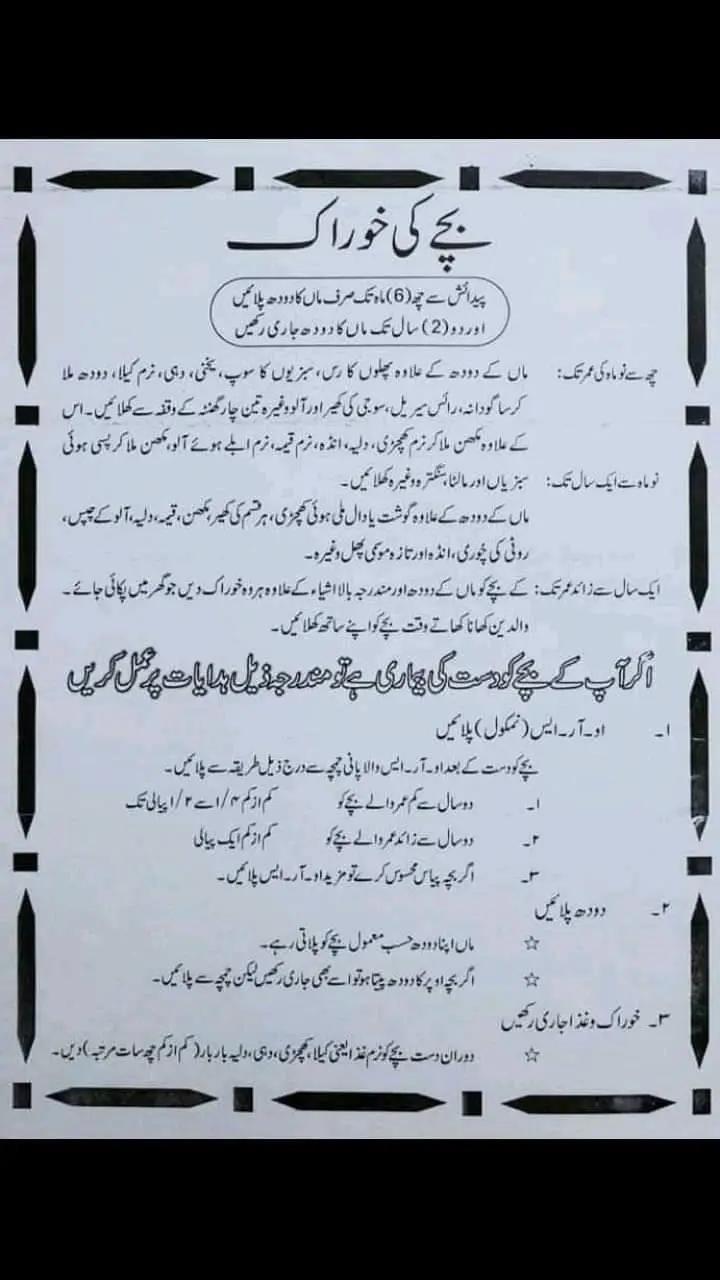 بچے کی خوراک
پیدائش سے چھ (6) ماہ تک صرف ماں کا دودھ پلائیں
اور دو (2) سال تک ماں کا دودھ جاری رکھیں
چھ سے نو ماہ کی عمر تک: ماں کے دودھ کے علاوہ پھلوں کا رس، سبزیوں کا سوپ، یخنی، دہی، نرم کیلا، دودھ ملا
کر ساگودانہ، رائس سیریل، سوجی کی کھیر اور آلو وغیرہ تین چار گھنٹہ کے وقفہ سے کھلائیں۔ اس
کے علاوہ مکھن ملا کر نرم کھچڑی، دلیہ، انڈہ، نرم قیمہ، نرم ابلے ہوئے آلو، مکھن ملا کر پسی ہوئی
نو ماہ سے ایک سال تک: سبزیاں اور مالٹا، سنگترہ وغیرہ کھلائیں۔
ماں کے دودھ کے علاوہ گوشت یا دال ملی ہوئی کھچڑی، ہر قسم کی کھیر، مکھن، قیمہ، دلیہ، آلو کے چپس،
روٹی کی چوری، انڈہ اور تازہ موسمی پھل وغیرہ۔
ایک سال سے زائد عمر تک: کے بچے کو ماں کے دودھ اور مندرجہ بالا اشیاء کے علاوہ ہر وہ خوراک دیں جو گھر میں پکائی جائے۔
والدین کھانا کھاتے وقت بچے کو اپنے ساتھ کھلائیں۔
اگر آپ کے بچے کو دست کی بیماری ہے تو مندرجہ ذیل ہدایات پر عمل کریں
۱۔ او۔آر۔ایس (نمکول) پلائیں
بچے کو دست کے بعد او۔آر۔ایس والا پانی چمچہ سے درج ذیل طریقہ سے پلائیں۔
۱۔ دو سال سے کم عمر والے بچے کو کم از کم ۱/۴ سے ۱/۲ پیالی تک
۲۔ دو سال سے زائد عمر والے بچے کو کم از کم ایک پیالی
۳۔ اگر بچہ پیاس محسوس کرے تو مزید او۔آر۔ایس پلائیں۔
۲۔ دودھ پلائیں
☆ ماں اپنا دودھ حسب معمول بچے کو پلاتی رہے۔
☆ اگر بچہ اوپر کا دودھ پیتا ہو تو اسے بھی جاری رکھیں لیکن چمچہ سے پلائیں۔
۳۔ خوراک و غذا جاری رکھیں
☆ دوران دست بچے کو نرم غذا یعنی کیلا، کھچڑی، دہی، دلیہ بار بار (کم از کم چھ سات مرتبہ) دیں۔